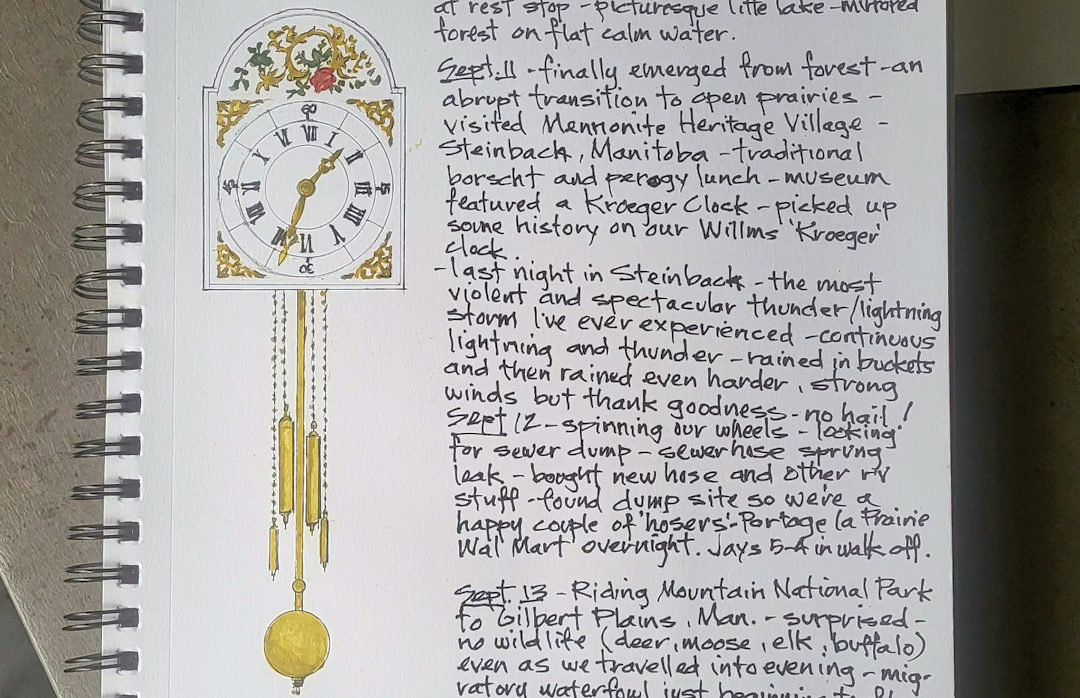 at rest stop - picturesque litte lake - mirrored
forest on flat calm water.
Sept. 11 - finally emerged from forest - an
abrupt transition to open prairies -
visited Mennonite Heritage Village -
Steinback, Manitoba - traditional
borscht and perogy lunch - museum
featured a Kroeger Clock - picked up
some history on our Willms 'Kroeger'
clock.
- last night in Steinback - the most
violent and spectacular thunder/lightning
storm I've ever experienced - continuous
lightning and thunder - rained in buckets
and then rained even harder, strong
winds but thank goodness - no hail!
Sept 12 - spinning our wheels - looking
for sewer dump - sewer hose sprung
leak - bought new hose and other rv
stuff - found dump site so we're a
happy couple of 'hosers' - Portage la Prairie
Wal Mart overnight. Jays 5-4 in walk off.
Sept. 13 - Riding Mountain National Park
to Gilbert Plains, Man. - surprised -
no wildlife (deer, moose, elk, buffalo)
even as we travelled into evening - mig-
ratory waterfowl just beginning to